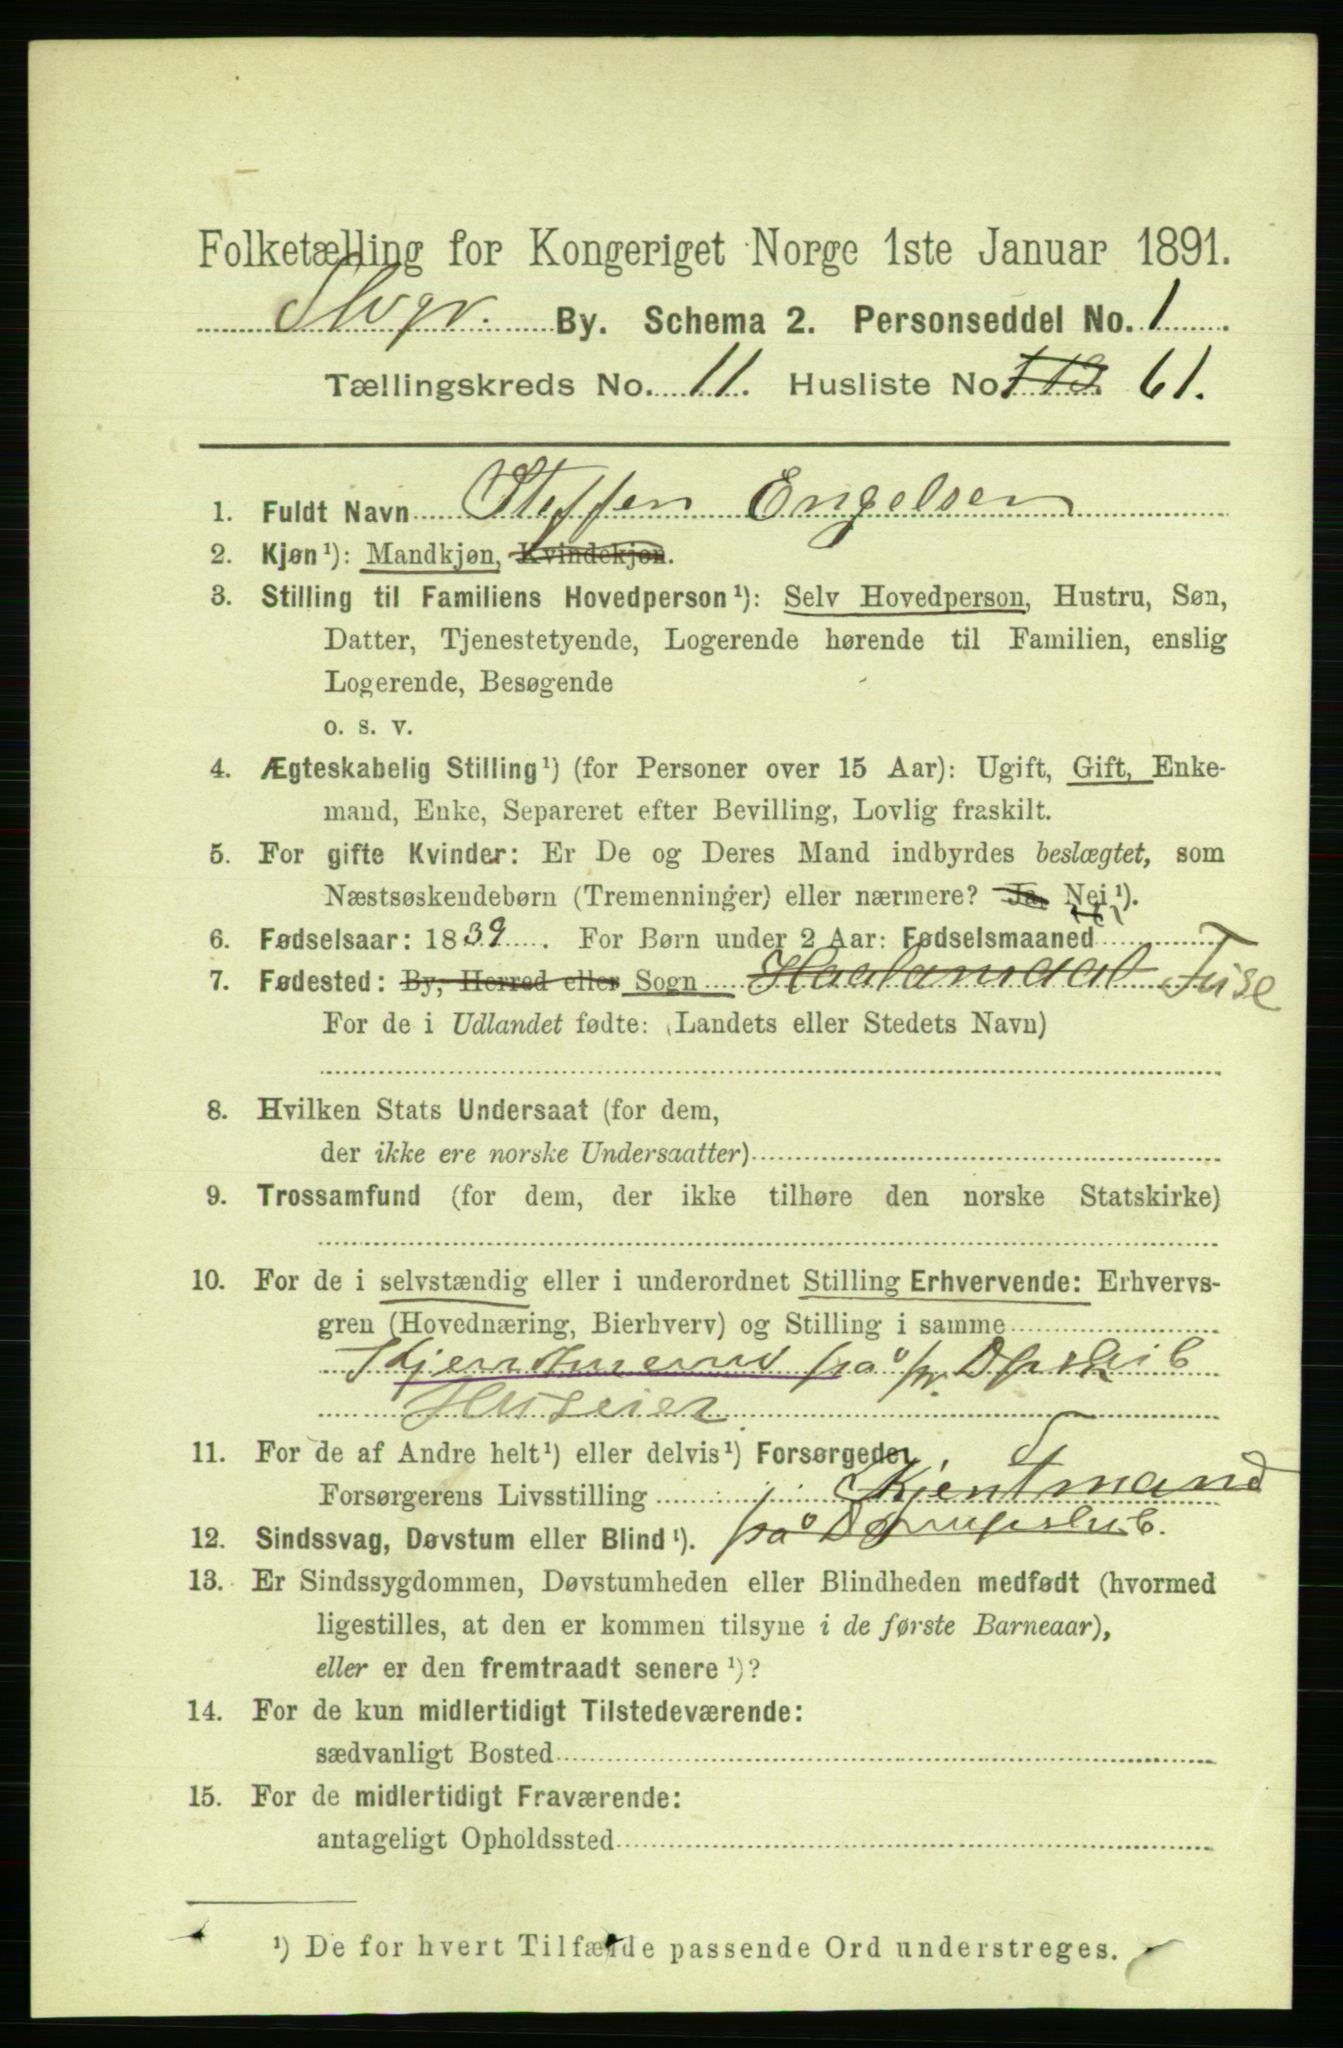 Folketælling for Kongeriget Norge 1ste Januar 1891.
Stvgr. By. Schema 2. Personseddel No. 1
Tællingskreds No. 11. Husliste No. 113. 61.
1. Fuldt Navn Steffen Engelsen
2. Kjøn¹): Mandkjøn, Kvindekjøn.
3. Stilling til Familiens Hovedperson¹): Selv Hovedperson, Hustru, Søn,
Datter, Tjenestetyende, Logerende hørende til Familien, enslig
Logerende, Besøgende
o. s. v.
4. Ægteskabelig Stilling¹) (for Personer over 15 Aar): Ugift, Gift, Enke-
mand, Enke, Separeret efter Bevilling, Lovlig fraskilt.
5. For gifte Kvinder: Er De og Deres Mand indbyrdes beslægtet, som
Næstsøskendebørn (Tremenninger) eller nærmere? Ja, Nei ¹).
6. Fødselsaar: 1839. For Børn under 2 Aar: Fødselsmaaned
7. Fødested: By, Herred eller Sogn Haalandal Fuse
For de i Udlandet fødte: (Landets eller Stedets Navn)
8. Hvilken Stats Undersaat (for dem,
der ikke ere norske Undersaatter)
9. Trossamfund (for dem, der ikke tilhøre den norske Statskirke)
10. For de i selvstændig eller i underordnet Stilling Erhvervende: Erhvervs-
gren (Hovednæring, Bierhverv) og Stilling i samme
Kjentmand paa pr. Dpskib
Huseier
11. For de af Andre helt¹) eller delvis¹) Forsørgede,
Forsørgerens Livsstilling Kjentmand
12. Sindssvag, Døvstum eller Blind¹). paa Dampskib.
13. Er Sindssygdommen, Døvstumheden eller Blindheden medfødt (hvormed
ligestilles, at den er kommen tilsyne i de første Barneaar),
eller er den fremtraadt senere ¹)?
14. For de kun midlertidigt Tilstedeværende:
sædvanligt Bosted
15. For de midlertidigt Fraværende:
antageligt Opholdssted
¹) De for hvert Tilfælde passende Ord understreges.